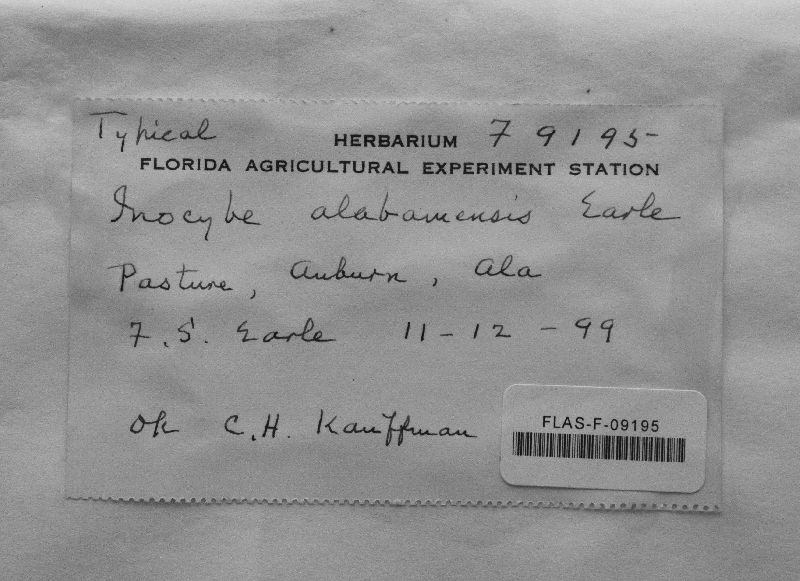 Typical HERBARIUM F 9195
FLORIDA AGRICULTURAL EXPERIMENT STATION
Inocybe alabamensis Earle
Pasture, Auburn, Ala
F. S. Earle 11-12-99
Ok C. H. Kauffman
FLAS-F-09195